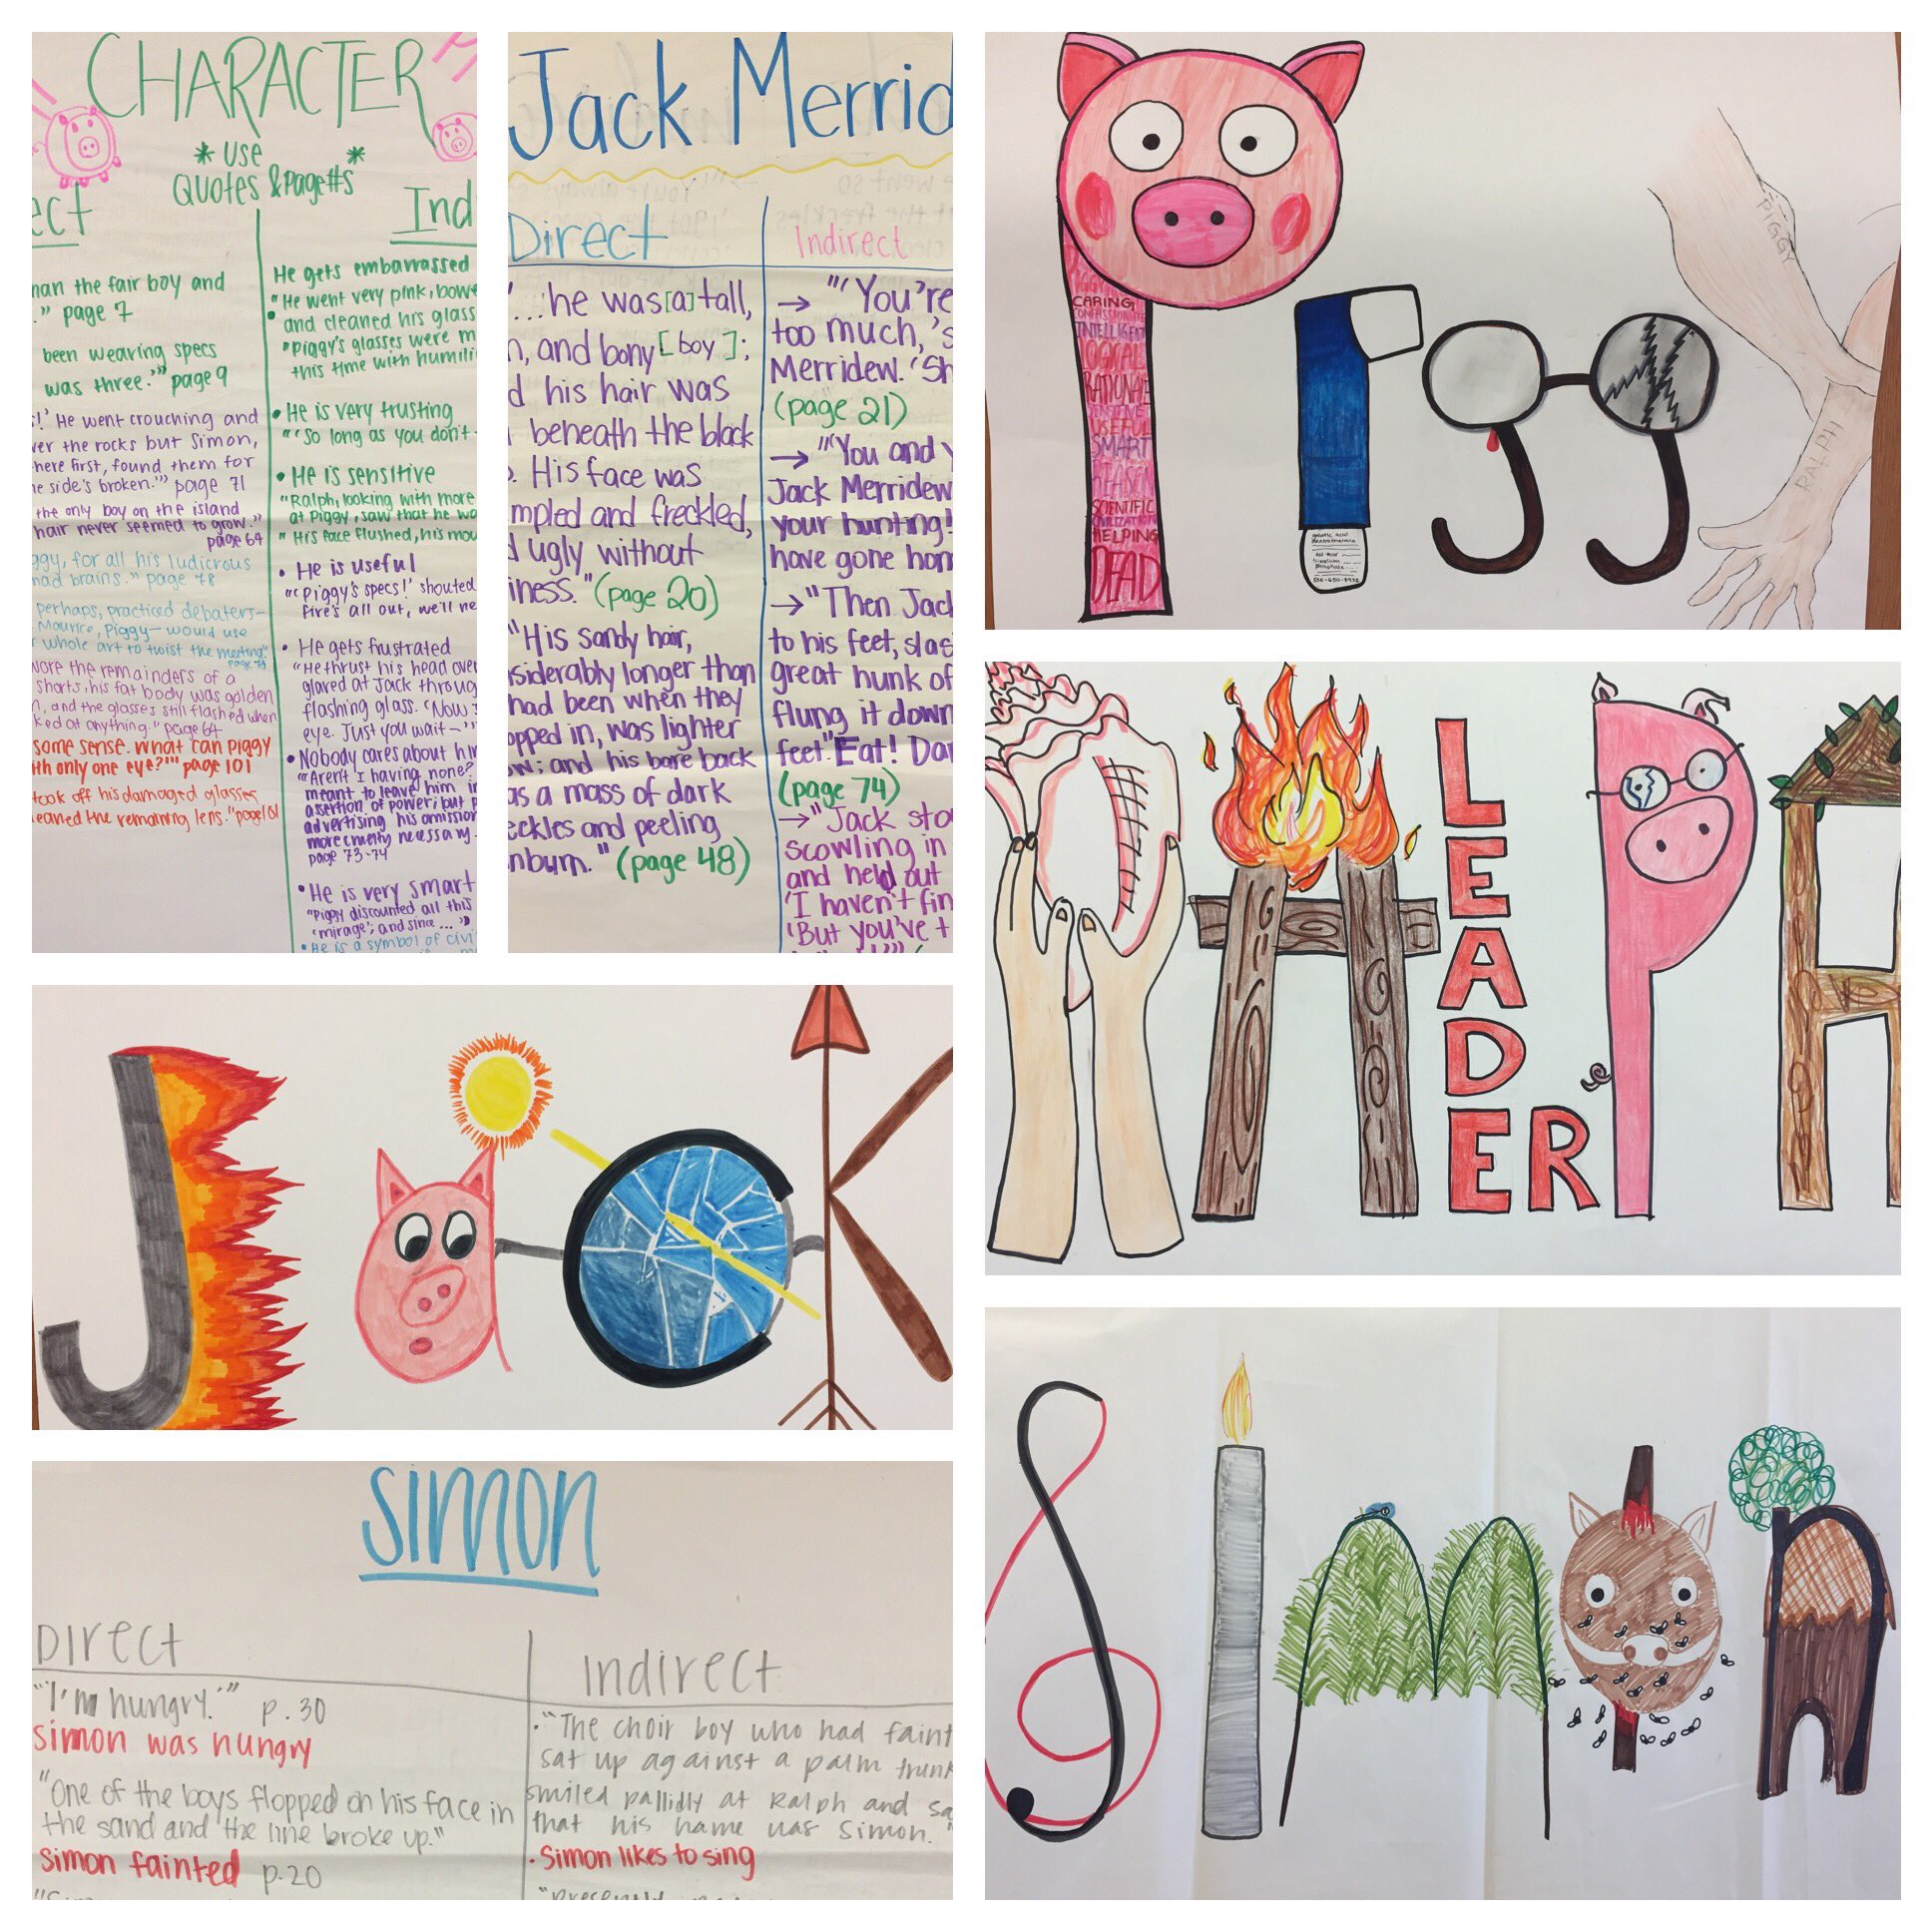 CHARACTER
* USE *
QUOTES & Page #s
ect
han the fair boy and
." page 7
been wearing specs
was three.'" page 9
!' He went crouching and
ver the rocks but Simon,
here first, found them for
e side's broken.'" page 71
the only boy on the island
hair never seemed to grow."
page 64
ggy, for all his ludicrous
had brains." page 78
perhaps, practiced debaters—
Maurice, Piggy— would use
r whole art to twist the meeting."
wore the remainders of a
shorts, his fat body was golden
n, and the glasses still flashed when
ked at anything." page 64
some sense. What can Piggy
th only one eye?'" page 101
took off his damaged glasses
eaned the remaining lens."
Ind
He gets embarrassed
"He went very pink, bowe
and cleaned his glass
"Piggy's glasses were m
this time with humili
• He is very trusting
"'So long as you don't
• He is sensitive
"Ralph, looking with more
at Piggy, saw that he wa
" His face flushed, his mou
• He is useful
"'Piggy's specs!' shouted
fire's all out, we'll ne
• He gets frustrated
"He thrust his head over
glared at Jack throug
flashing glass. 'Now I
eye. Just you wait—'"
• Nobody cares about him
"'Aren't I having none?'
meant to leave him in
assertion of power; but
advertising his omission
more cruelty necessary
page 73-74
• He is very smart
"Piggy discounted all this
'mirage'; and since ..."
• He is a symbol of civi
Jack Merrid
Direct
"...he was [a] tall,
n, and bony [boy];
d his hair was
beneath the black
. His face was
mpled and freckled,
d ugly without
iness." (page 20)
"His sandy hair,
nsiderably longer than
had been when they
opped in, was lighter
ow; and his bare back
as a mass of dark
eckles and peeling
nburn." (page 48)
Indirect
→ "'You're
too much,' s
Merridew. 'Sh
(page 21)
→ "You and y
Jack Merridew
your hunting!
have gone hom
→ "Then Jac
to his feet, slas
great hunk of
flung it down
feet. "Eat! Da
(page 74)
→ "Jack sto
scowling in
and held out
'I haven't fin
'But you've t
CARING
COMPASSIONATE
INTELLIGENT
LOGICAL
RATIONALE
SENSITIVE
USEFUL
SMART
REASON
SCIENTIFIC
CIVILIZATION
HELPING
DEAD
PIGGY
RALPH
LEADER
P
H
J
K
simon
Direct
"'I'm hungry.'" p.30
simon was hungry
"One of the boys flopped on his face in
the sand and the line broke up."
simon fainted p.20
Indirect
• "The choir boy who had faint
sat up against a palm trunk
smiled pallidly at Ralph and sa
that his name was Simon."
• Simon likes to sing
SIM
n